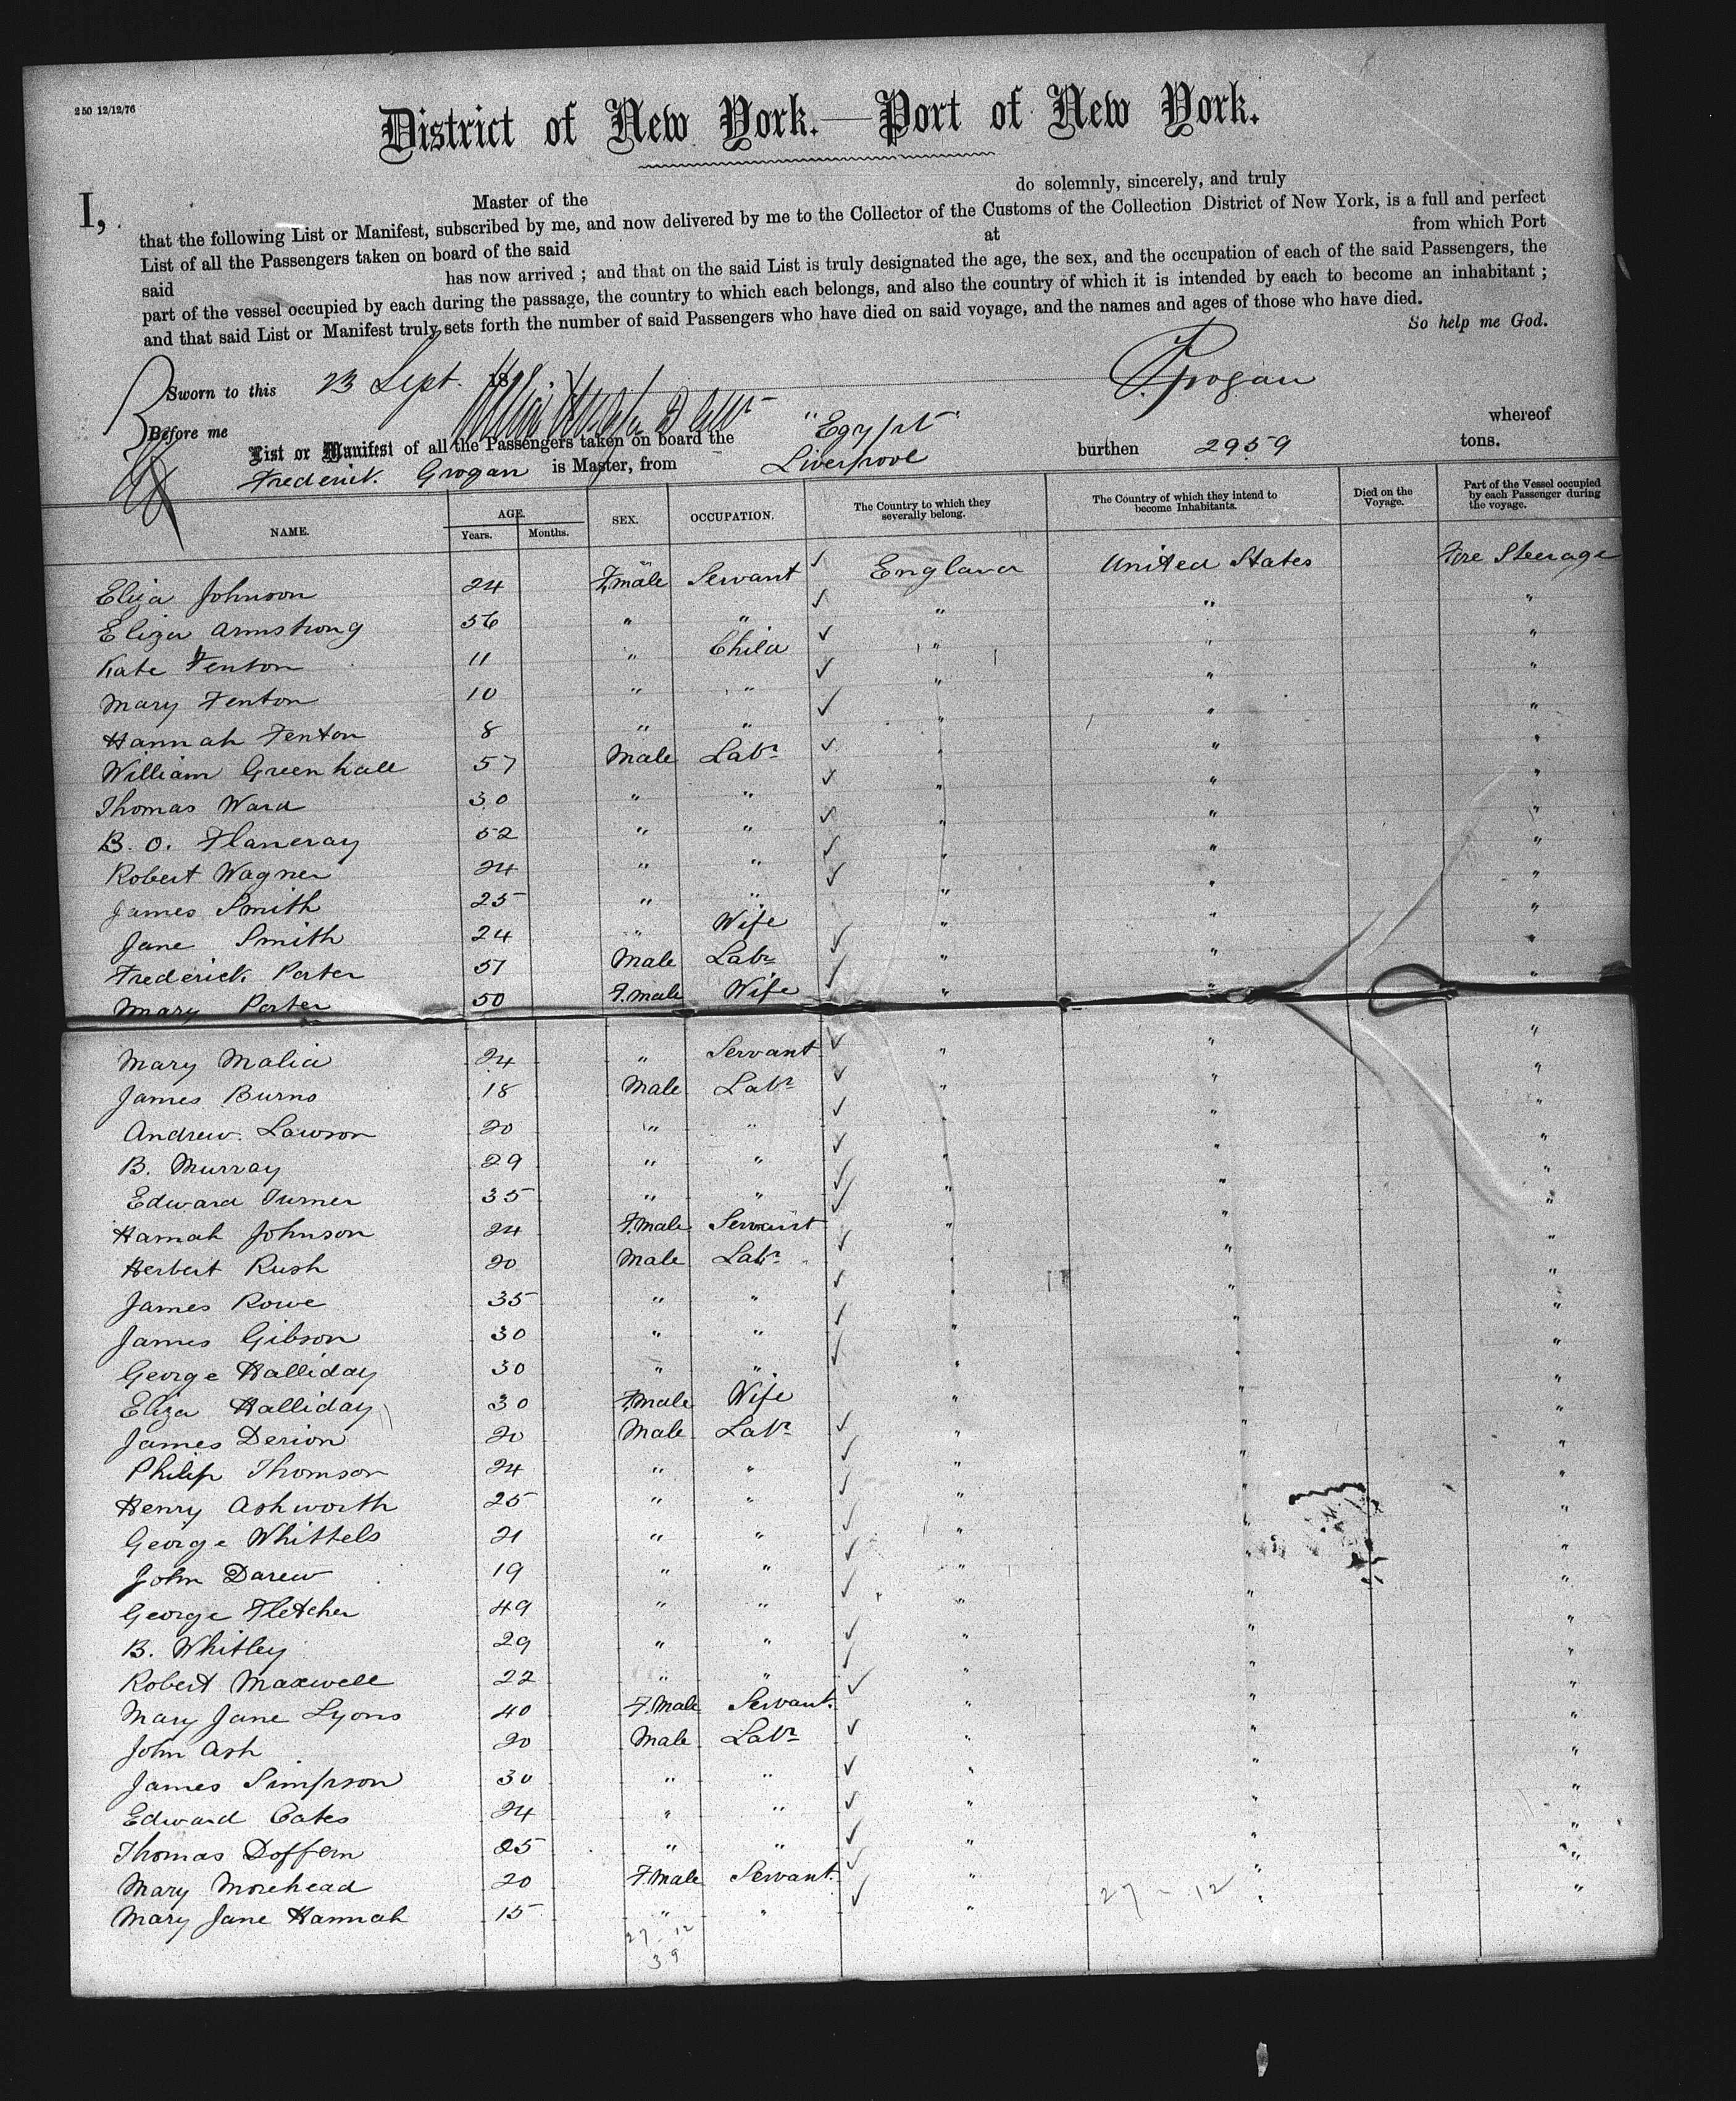 250 12/12/76
District of New York.—Port of New York.
I, Master of the do solemnly, sincerely, and truly
that the following List or Manifest, subscribed by me, and now delivered by me to the Collector of the Customs of the Collection District of New York, is a full and perfect
List of all the Passengers taken on board of the said at from which Port
said has now arrived ; and that on the said List is truly designated the age, the sex, and the occupation of each of the said Passengers, the
part of the vessel occupied by each during the passage, the country to which each belongs, and also the country of which it is intended by each to become an inhabitant ;
and that said List or Manifest truly sets forth the number of said Passengers who have died on said voyage, and the names and ages of those who have died.
So help me God.
Sworn to this 23 Sept. 18 F. Grogan
Before me
List or Manifest of all the Passengers taken on board the "Egypt" whereof
Frederick Grogan is Master, from Liverpool burthen 2959 tons.
NAME. AGE. Years. Months. SEX. OCCUPATION. The Country to which they severally belong. The Country of which they intend to become Inhabitants. Died on the Voyage. Part of the Vessel occupied by each Passenger during the voyage.
Eliza Johnson 24 F.male Servant ✓ England United States Fore Steerage
Eliza Armstrong 56 " " ✓ " " "
Kate Fenton 11 " Child ✓ " " "
Mary Fenton 10 " " ✓ " " "
Hannah Fenton 8 " " ✓ " " "
William Greenhall 57 Male Labr ✓ " " "
Thomas Ward 30 " " ✓ " " "
B. O. Flaneray 52 " " ✓ " " "
Robert Wagner 24 " " ✓ " " "
James Smith 25 " " ✓ " " "
Jane Smith 24 " Wife " " "
Frederick Porter 51 Male Labr ✓ " " "
Mary Porter 50 F.male Wife ✓ " " "
Mary Malia 24 " Servant ✓ " " "
James Burns 18 Male Labr ✓ " " "
Andrew Lawson 20 " " ✓ " " "
B. Murray 29 " " ✓ " " "
Edward Turner 35 " " ✓ " " "
Hannah Johnson 24 F.male Servant ✓ " " "
Herbert Rush 20 Male Labr ✓ " " "
James Rowe 35 " " ✓ " " "
James Gibson 30 " " ✓ " " "
George Halliday 30 " " ✓ " " "
Eliza Halliday 30 F.male Wife " " "
James Derion 20 Male Labr ✓ " " "
Philip Thomson 24 " " ✓ " " "
Henry Ashworth 25 " " ✓ " " "
George Whittels 21 " " ✓ " " "
John Darew 19 " " ✓ " " "
George Fletcher 49 " " ✓ " " "
B. Whitley 29 " " ✓ " " "
Robert Maxwell 22 " " ✓ " " "
Mary Jane Lyons 40 F.Male Servant. ✓ " " "
John Ash 20 Male Labr ✓ " " "
James Simpson 30 " " ✓ " " "
Edward Oates 24 " " ✓ " " "
Thomas Doffern 25 " " ✓ " " "
Mary Morehead 20 F.Male Servant. ✓ " " "
Mary Jane Hannah 15 " " ✓ " " "
27 - 12
27 - 12
39